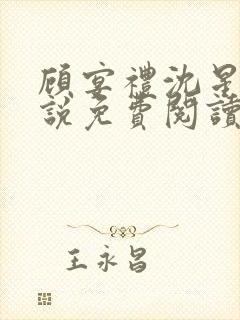 顾宴禮沈星
說免費閱讀
王永昌